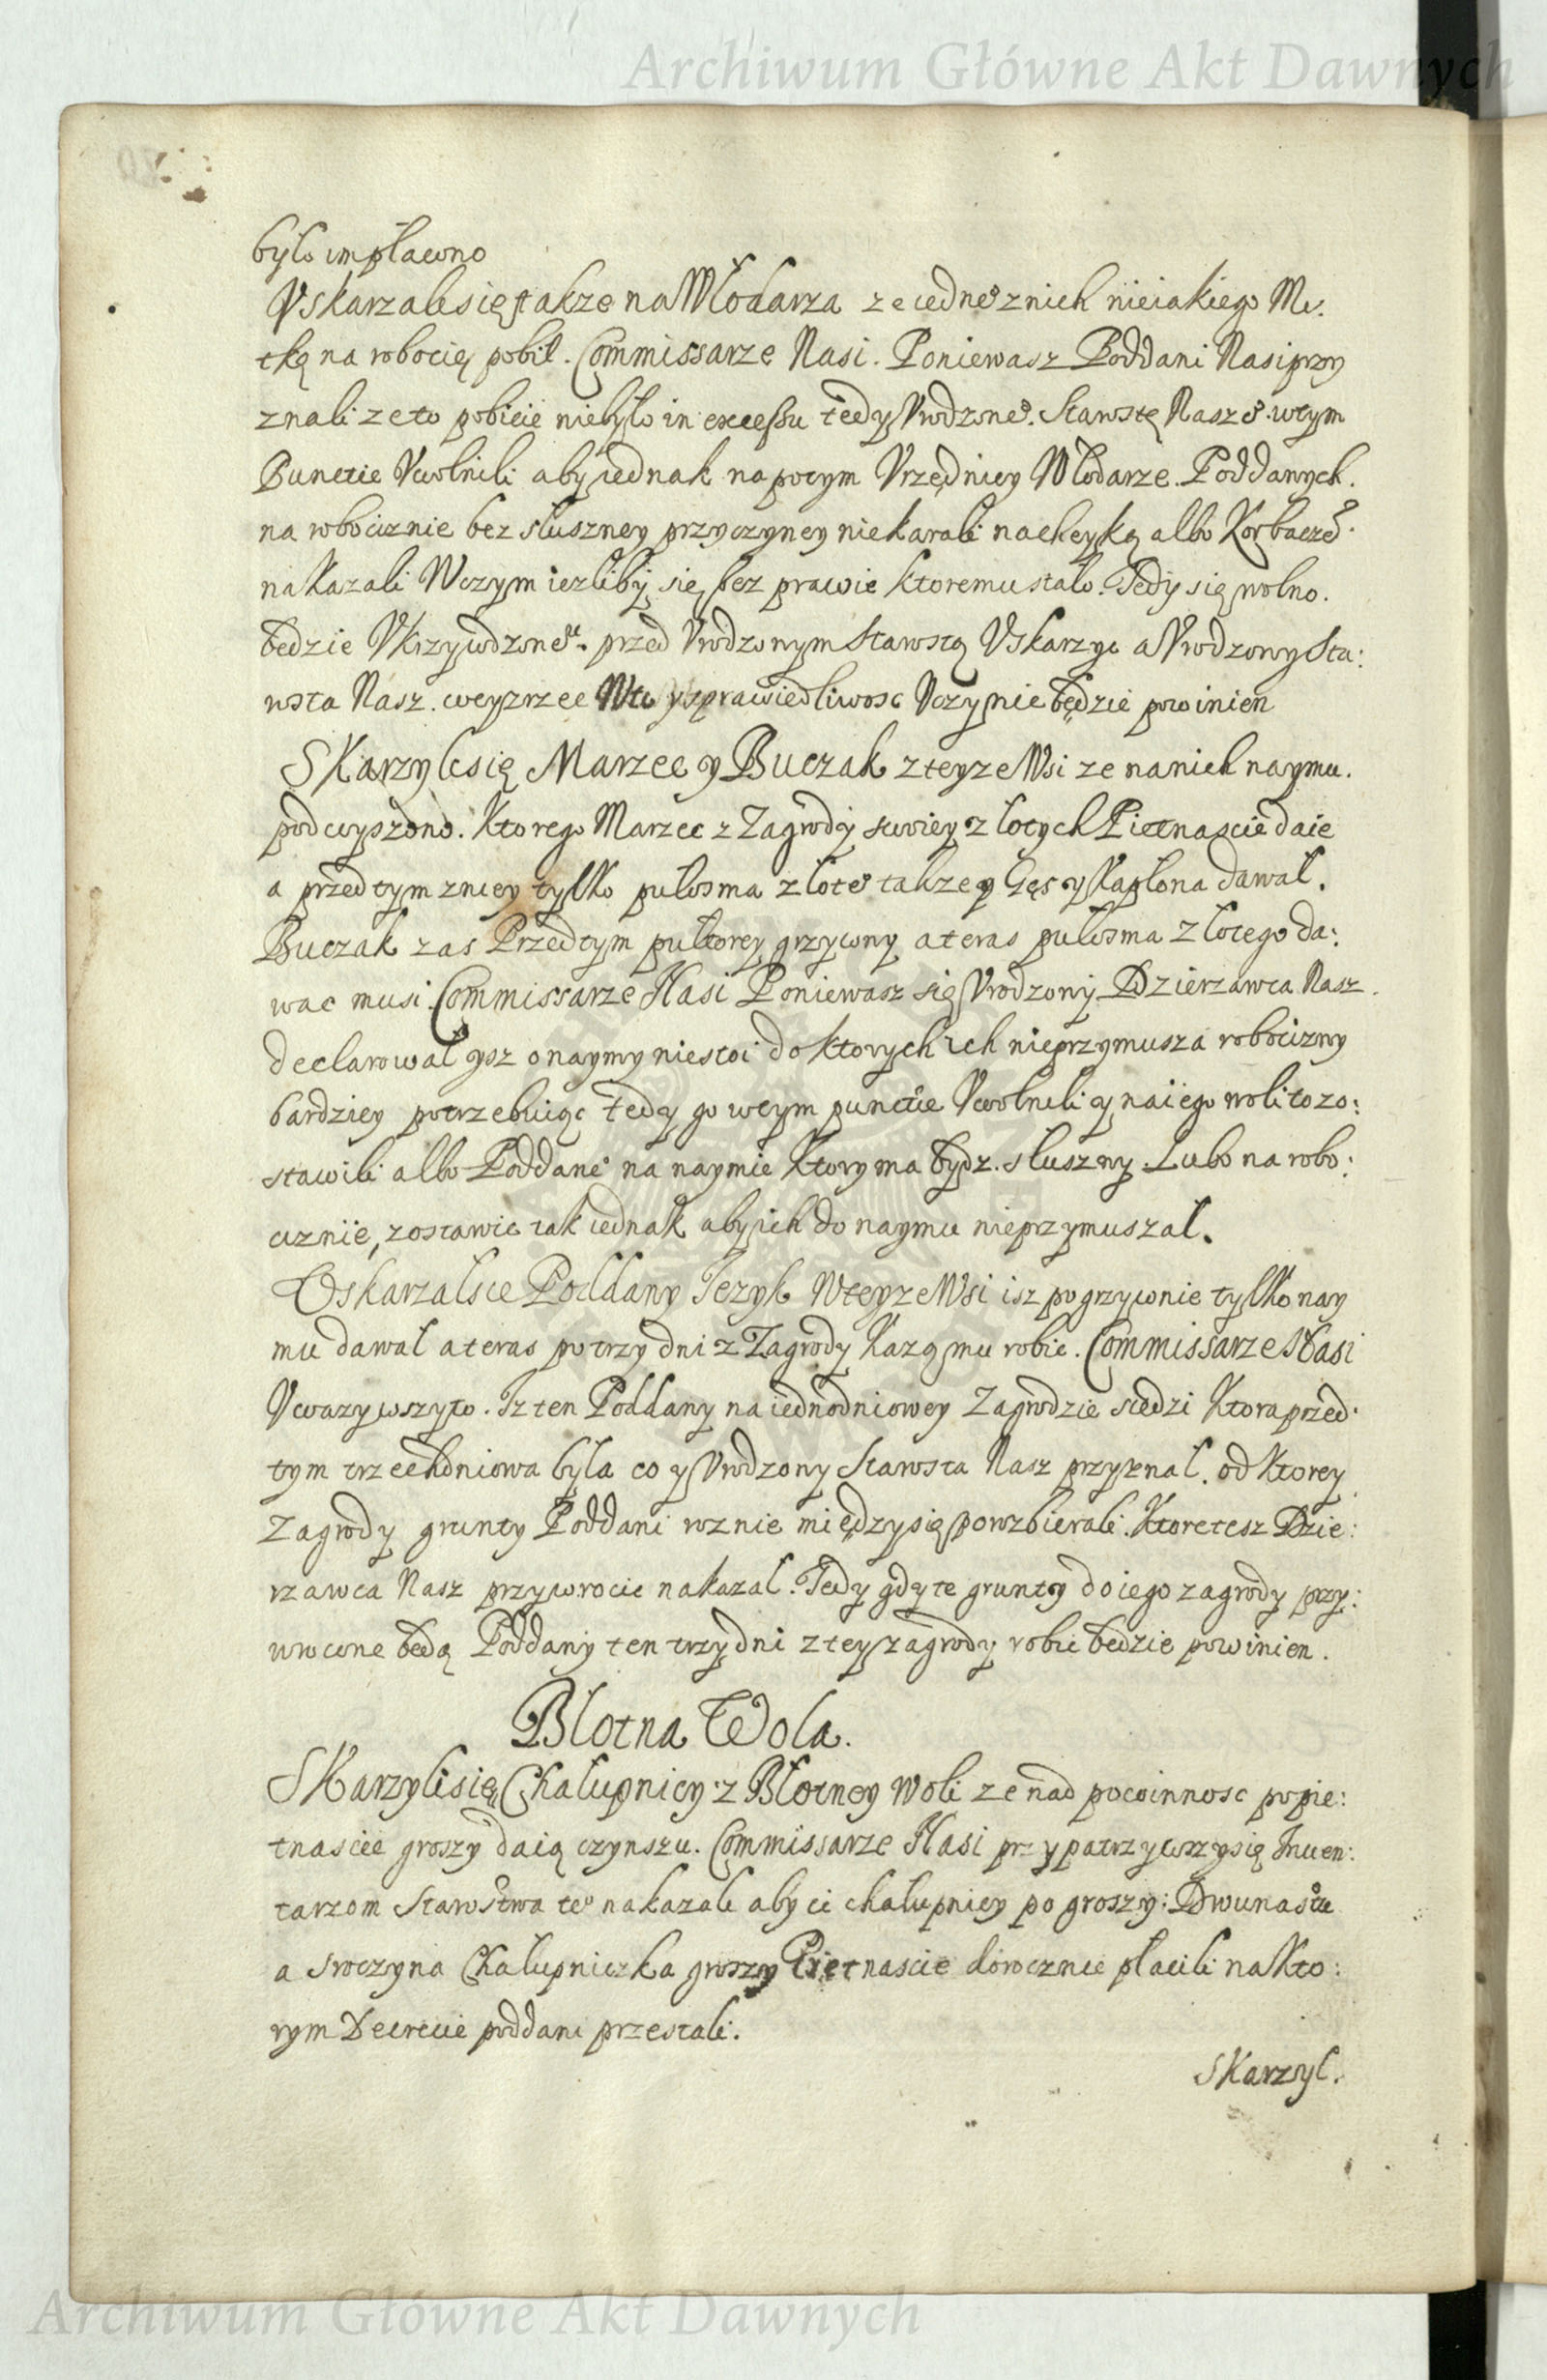 Archiwum Główne Akt Dawnych
było wpławno
Vskarzali się takze na Włodarza ze iedne° znich nieiakiego Mu:
tkę na robocię pobił. Commissarze Nasi. Poniewasz Poddani Nasi przy
znali ze to pobicie niebyło in excessu tedy Vrodzone°. Starostę Nasze°. wtym
Punctie Vwolnili aby iednak napotym Vrzędnicy Włodarze. Poddanych.
na robociznie bez słuszney przyczyney niekarali nacheyką albo Korbacze°.
nakazali Wczym iezliby się bez prawie ktoremu stało. Tedy się wolno.
będzie Vkrzywdzone^u. przed Vrodzonym Starostą Vskarzyc a Vrodzony Sta:
rosta Nasz. weyzrzec Wto y sprawiedliwosc Vczynic będzie powinien
Skarzyli się Marzec y Buczak z teyze Wsi ze na nich naymu.
podwyszono. Ktorego Marzec z Zagrody swiey złotych Pietnascie daie
a przedtym zniey tylko pułosma złote° takze y Gęs y Kapłona dawał.
Buczak zas Przedtym pułtorey grzywny a teras pułosma złotego da:
wac musi. Commissarze Nasi Poniewasz się Vrodzony Dzierzawca Nasz.
declarował ysz o naymy niestoi do ktorych ich nieprzymusza robocizny
bardziey potrzebuiąc tedy go wtym punctie Vwolnili y na iego woli to zo:
stawili albo Poddane° na naymie Ktory ma bydz. słuszny. Lubo na robo:
ciznie, zostawic tak iednak aby ich do naymu nieprzymuszał.
Vskarzał sie Poddany Jezyk Wteyze Wsi isz po grzywnie tylko nay
mu dawał a teras po trzy dni z Zagrody Kazą mu robic. Commissarze Nasi
Vwazywszy to. Iz ten Poddany na iednodniowey Zagrodzie siedzi Ktora przed:
tym trzechdniowa była co y Vrodzony Starosta Nasz przyznał. od Ktorey
Zagrody grunty Poddani roznie między się porozbierali. Ktore tesz Dzie:
rzawca Nasz przywrocic nakazał. Tedy gdy te grunty do iego zagrody przy:
wrocone będą Poddany ten trzy dni z tey zagrody robic będzie powinien.
Błotna Wola.
Skarzyli się Chałupnicy z Błotney Woli ze nad powinnosc po pie:
tnascie groszy daią czynszu. Commissarze Nasi przypatrzywszy się Inwen:
tarzom Starostwa te° nakazali aby ci chałupnicy po groszy: Dwunastu
a Sroczyna Chałupniczka groszy Pietnascie dorocznie płacili na Kto:
rym Decrecie poddani przestali.
Skarzył.
Archiwum Główne Akt Dawnych